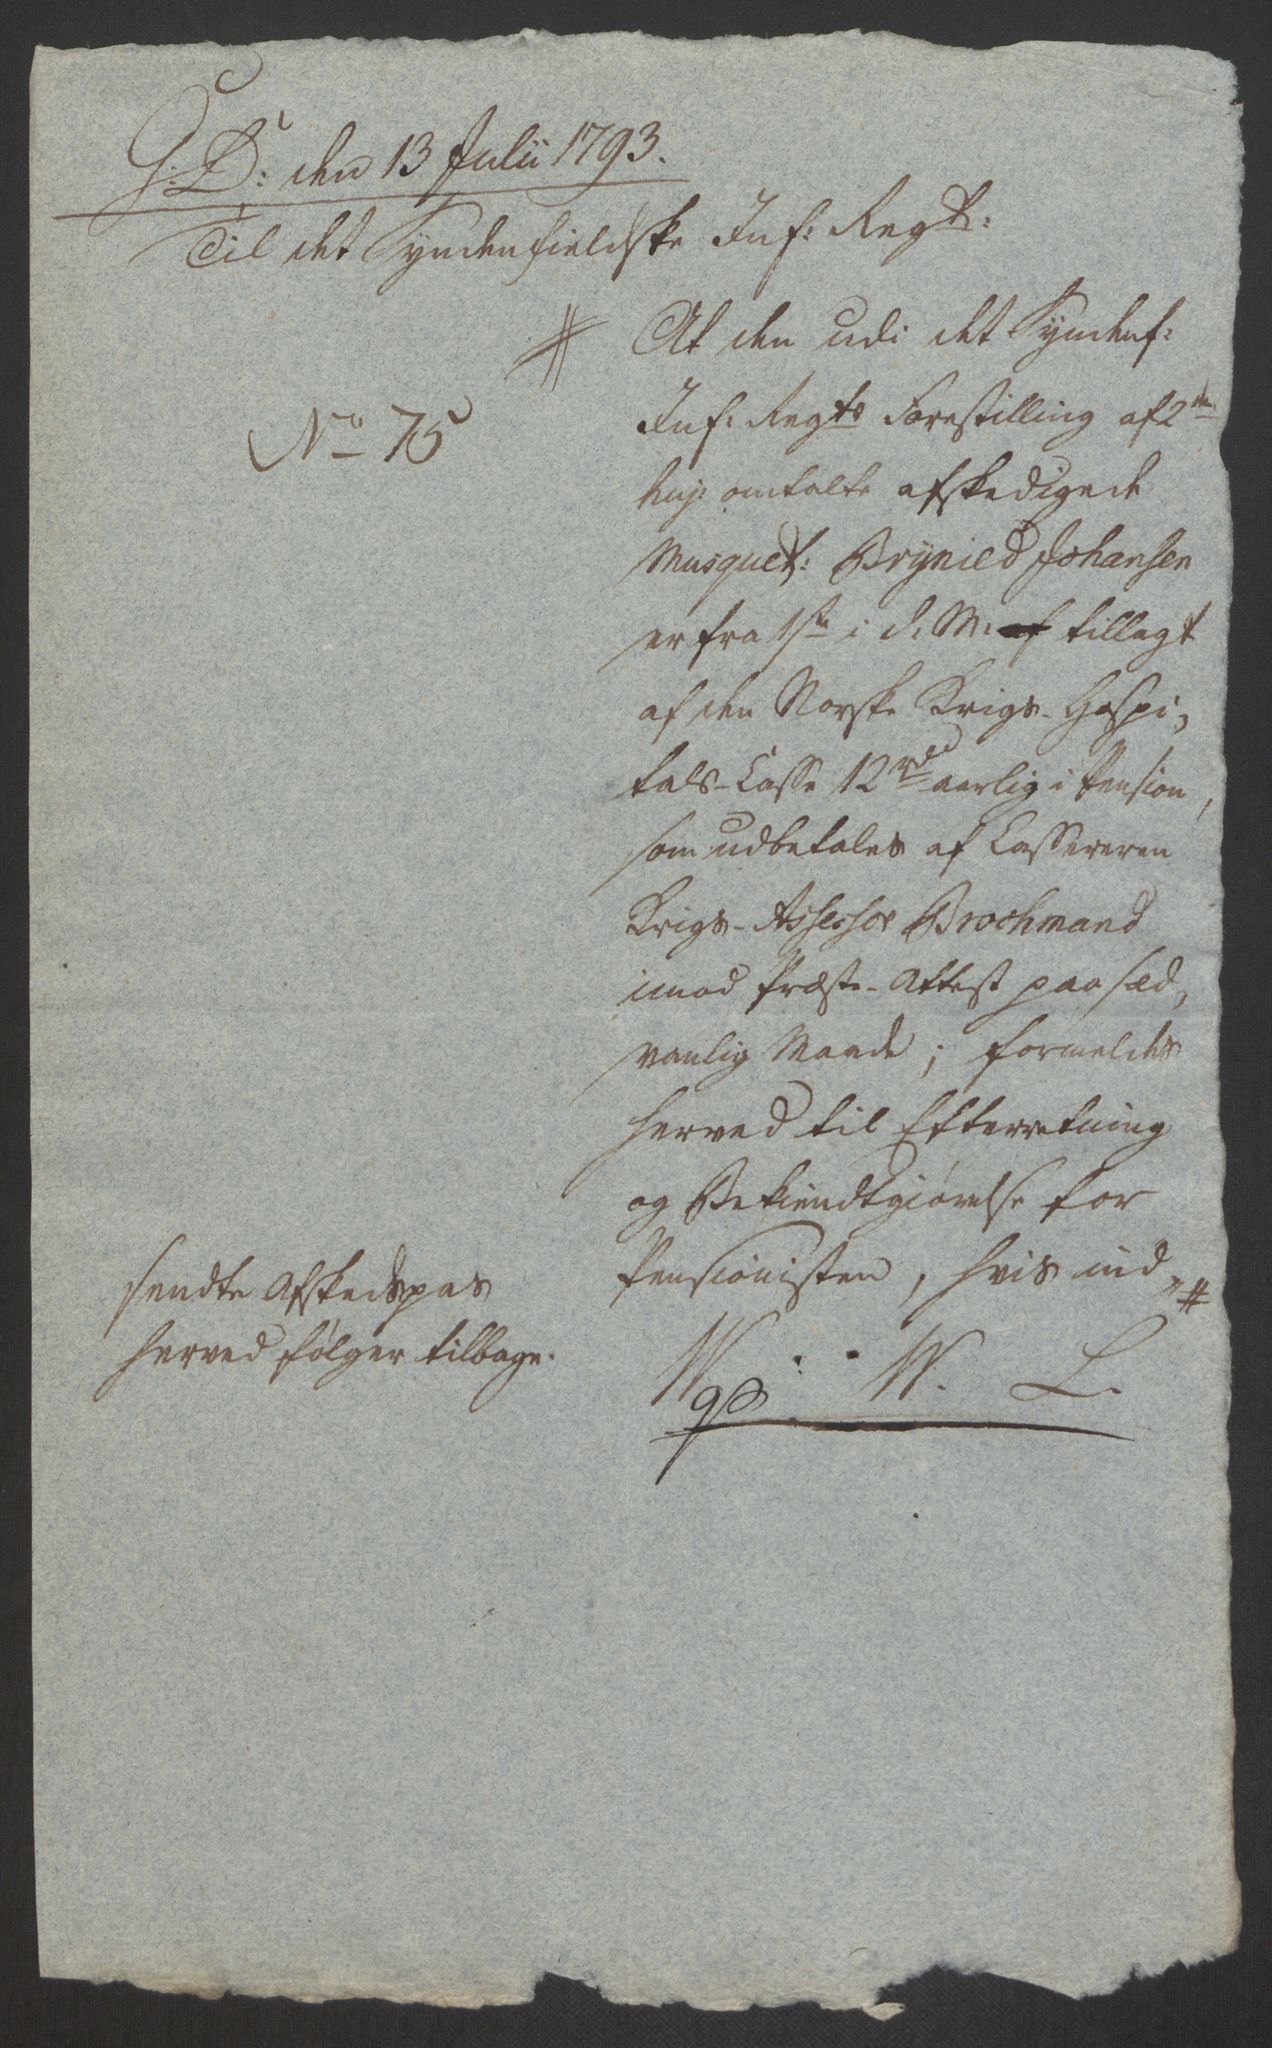 G: D: den 13 Julii 1793.
Til det Syndenfieldske Inf: Regt:
# At den udi det Syndenf:
No 75
Inf: Regts Forestilling af 2den
huj: omtalte afskedigede
Musquet: Brynild Johansen
er fra 1ste i d. M: af tillagt
af den Norske Krigs-Hospi-
tals-Casse 12 rd aarlig i Pension,
som udbetales af Cassereren
Krigs-Assessor Brochmand
imod Præste-Attest paa sæd-
vanlig Maade; formeldes
herved til Efterretning
og Bekiendtgiørelse for
Pensionisten, hvis ind- #
sendte Afskedspas
herved følger tilbage.
W. L.